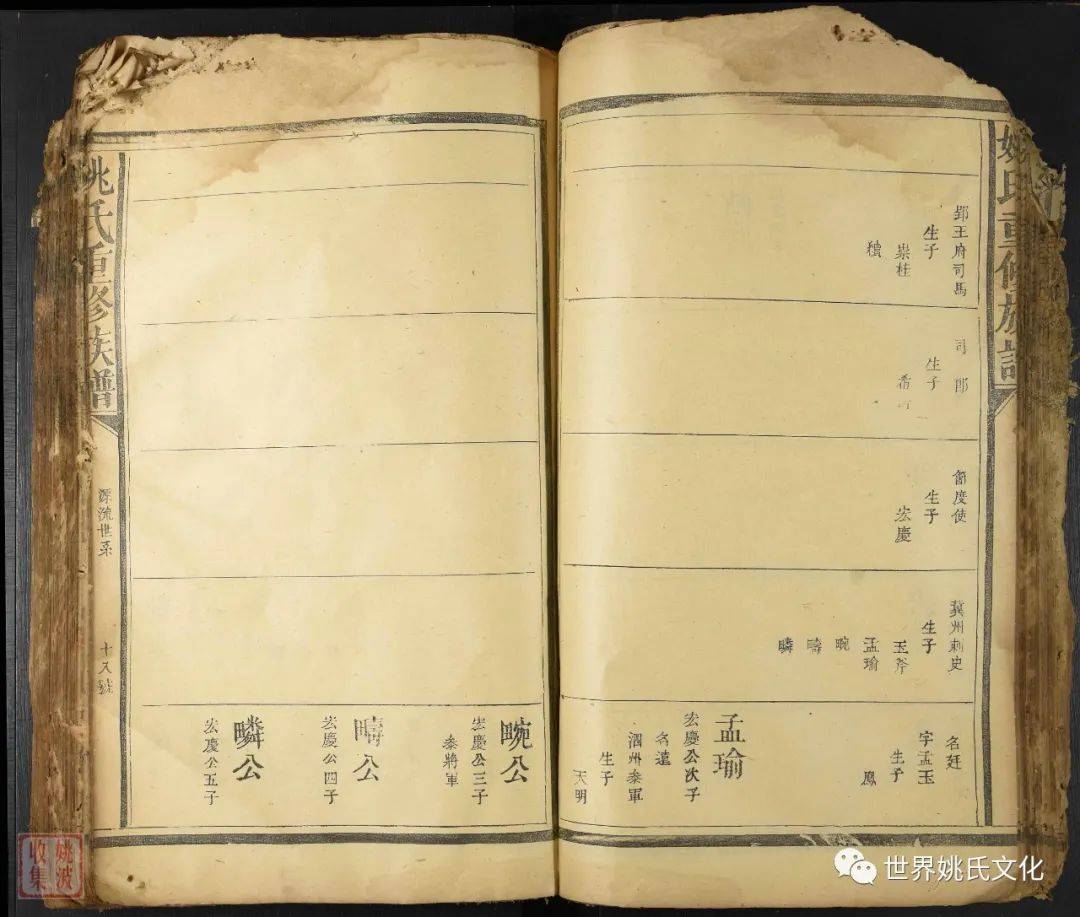 姚氏重修族譜
郢王府司馬
生子
崇桂
司郎
生子
希
節度使
生子
宏慶
冀州刺史
生子
玉斧
孟瑜
畹
疇
疄
名廷
字孟玉
生子
鳳
孟瑜
宏慶公次子
名遣
泗州叅軍
生子
天明
畹公
宏慶公三子
叅將軍
疇公
宏慶公四子
疄公
宏慶公五子
姚氏重修族譜
源流世系
十八號
姚波
收集
世界姚氏文化